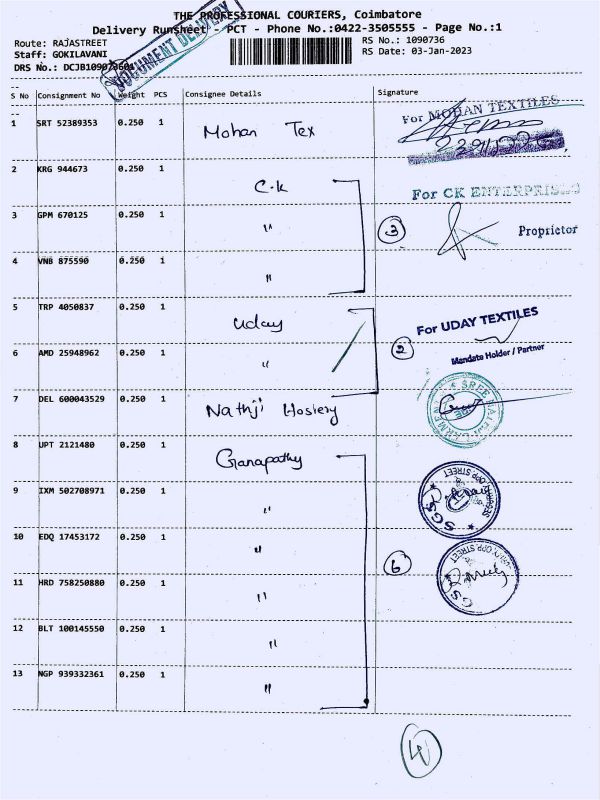 THE PROFESSIONAL COURIERS, Coimbatore
Delivery Runsheet - PCT - Phone No.:0422-3505555 - Page No.:1
Route: RAJASTREET
RS No.: 1090736
Staff: GOKILAVANI
RS Date: 03-Jan-2023
DRS No.: DCJB109073601
DOCUMENT DELIVERY
S No Consignment No Weight PCS Consignee Details Signature
1 SRT 52389353 0.250 1 Mohan Tex
For MOHAN TEXTILES
2 KRG 944673 0.250 1 C.k
For CK ENTERPRISES
3 GPM 670125 0.250 1 "
3 Proprietor
4 VNB 875590 0.250 1 "
5 TRP 4050837 0.250 1 Uday
For UDAY TEXTILES
6 AMD 25948962 0.250 1 "
2 Mandate Holder / Partner
7 DEL 600043529 0.250 1 Nathji Hosiery
SREE
8 UPT 2121480 0.250 1 Ganapathy
9 IXM 502708971 0.250 1 "
SGS
OPP STREET
10 EDQ 17453172 0.250 1 "
6
OPP STREET
11 HRD 758250880 0.250 1 "
12 BLT 100145550 0.250 1 "
13 NGP 939332361 0.250 1 "